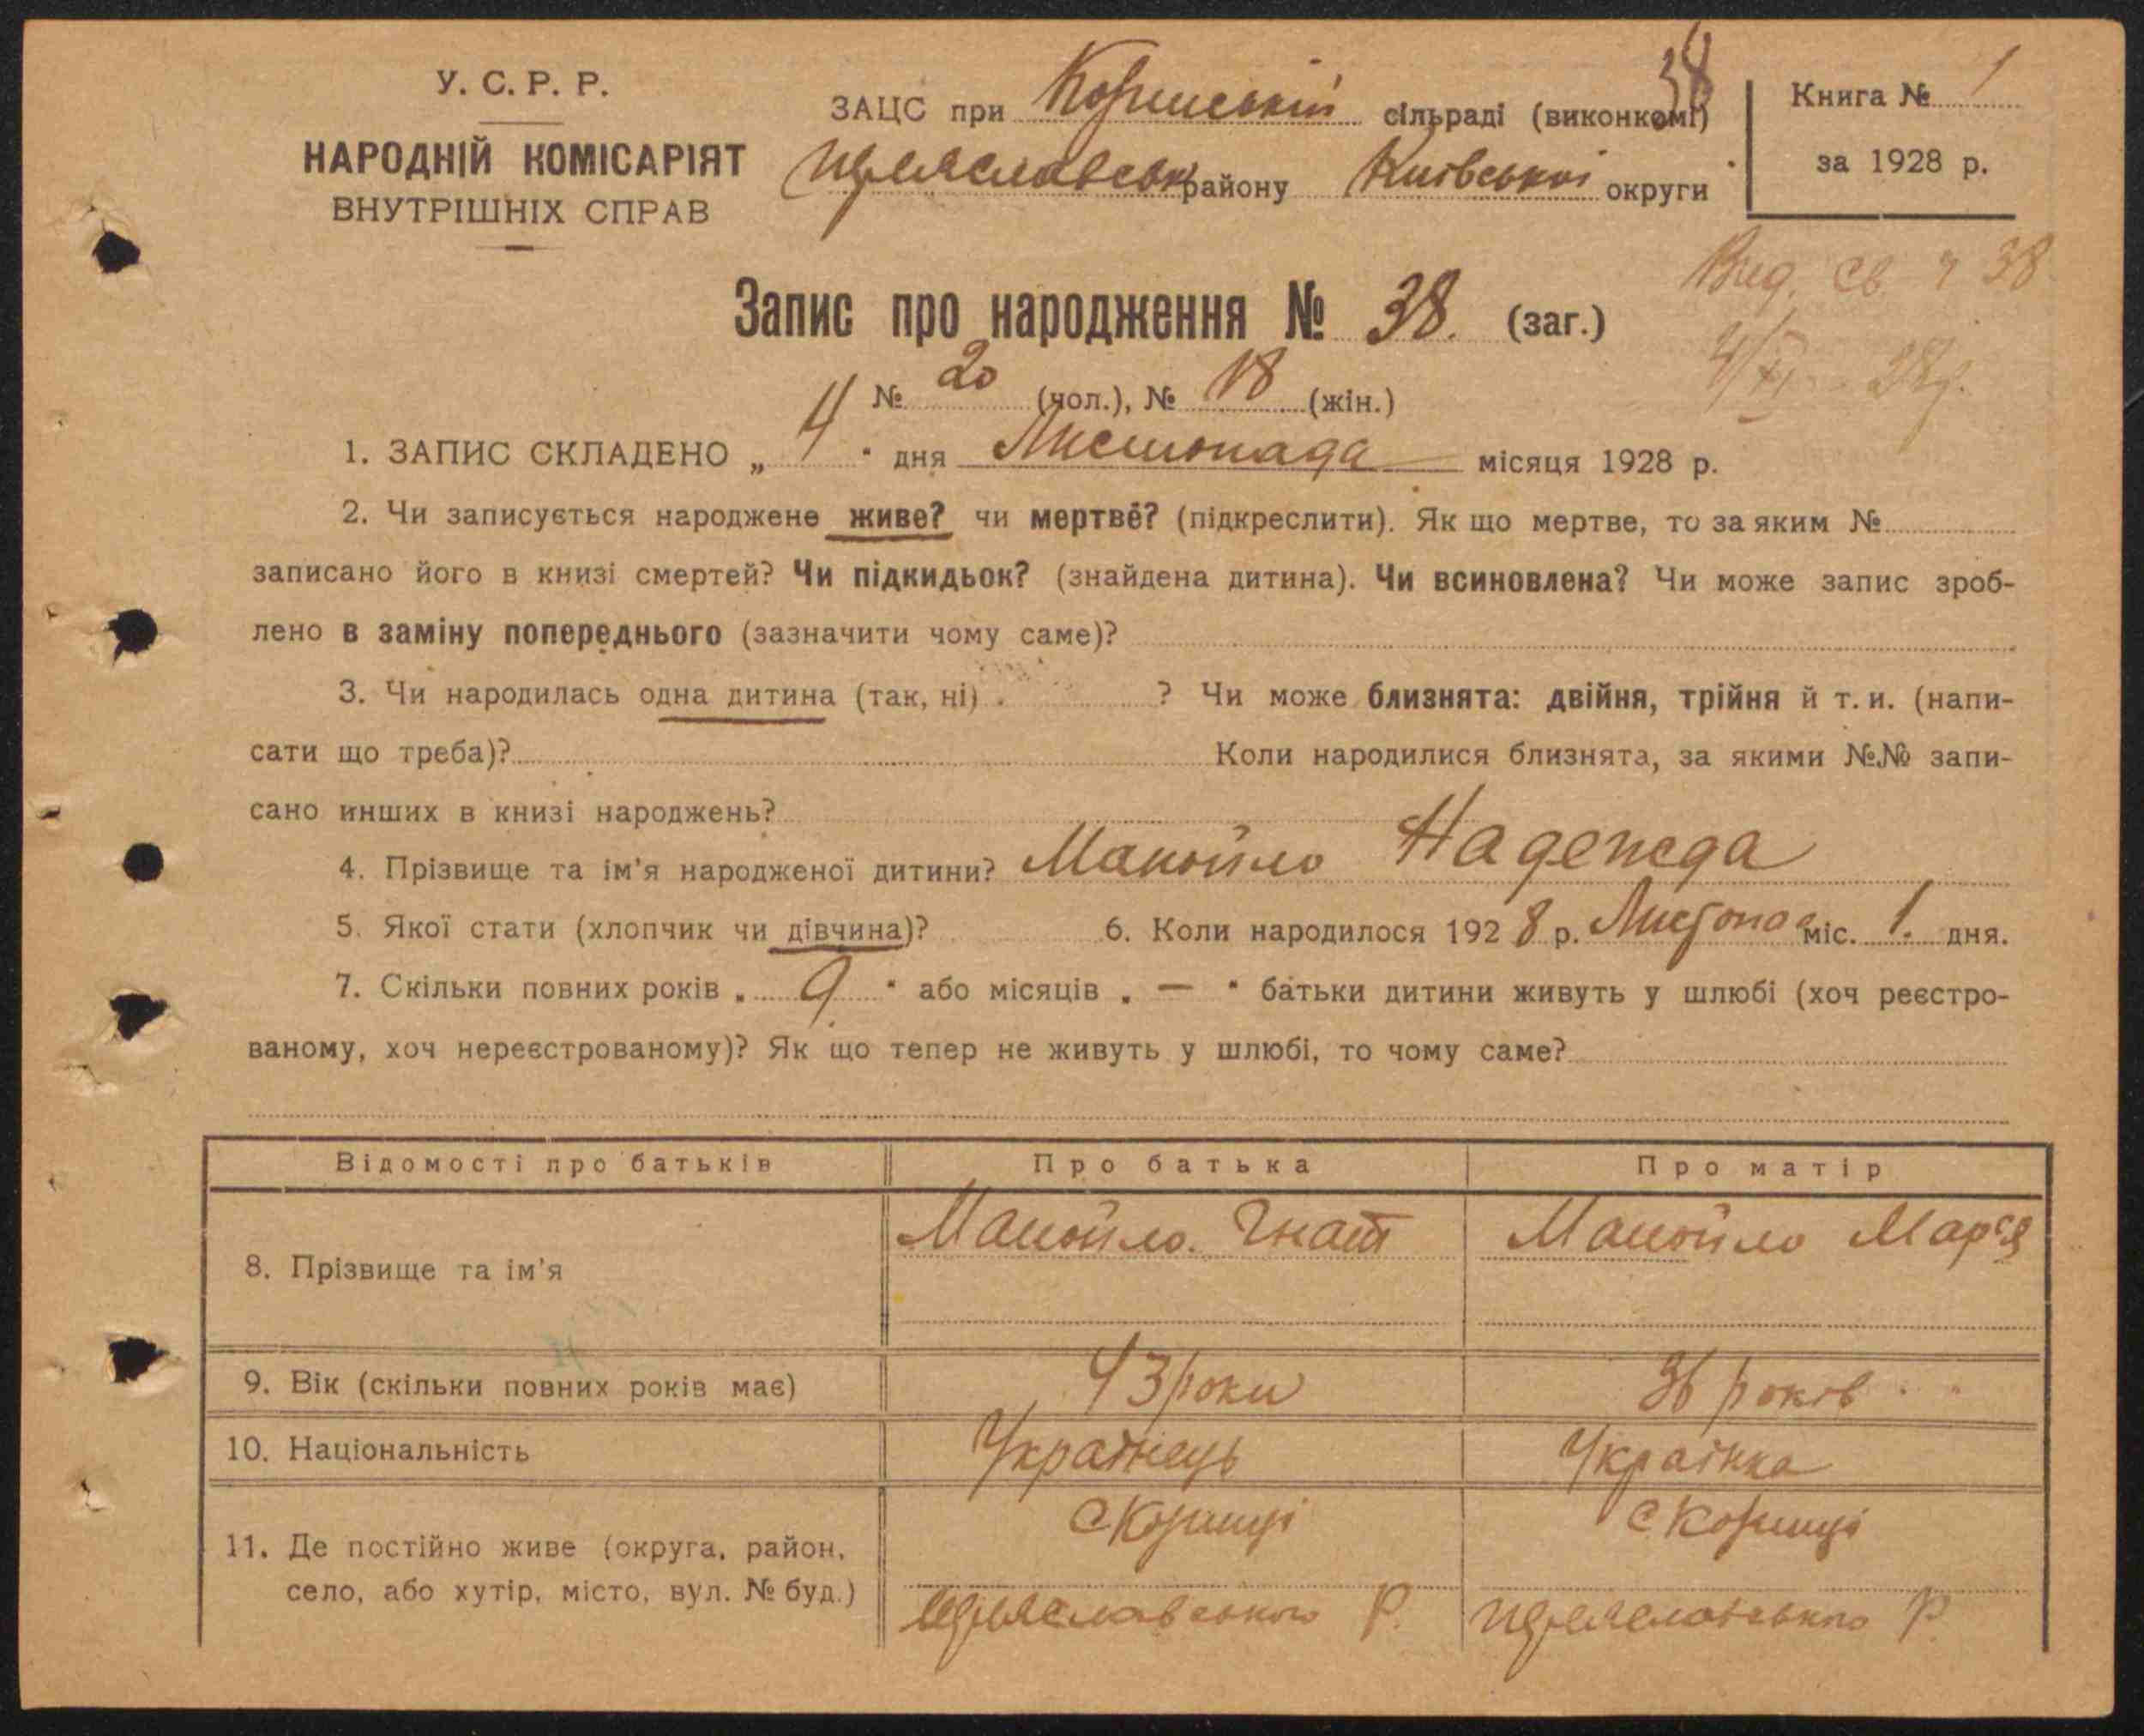 У. С. Р. Р.
НАРОДНІЙ КОМІСАРІЯТ
ВНУТРІШНІХ СПРАВ
38
ЗАЦС при Корінській сільраді (виконкомі)
Переяславськ району Київської округи
Книга № 1
за 1928 р.
Вид. св. ч 38
4/XI 28р.
Запис про народження № 38. (заг.)
№ 20 (чол.), № 18 (жін.)
1. ЗАПИС СКЛАДЕНО „ 4 " дня Листопада місяця 1928 р.
2. Чи записується народжене живе? чи мертве? (підкреслити). Як що мертве, то за яким №
записано його в книзі смертей? Чи підкидьок? (знайдена дитина). Чи всиновлена? Чи може запис зроб-
лено в заміну попереднього (зазначити чому саме)?
3. Чи народилась одна дитина (так, ні) ? Чи може близнята: двійня, трійня й т. и. (напи-
сати що треба)? Коли народилися близнята, за якими №№ запи-
сано инших в книзі народжень?
4. Прізвище та ім'я народженої дитини? Манойло Надежда
5. Якої стати (хлопчик чи дівчина)? 6. Коли народилося 1928 р. Листопа міс. 1. дня.
7. Скільки повних років „ 9 " або місяців „ — " батьки дитини живуть у шлюбі (хоч реєстро-
ваному, хоч нереєстрованому)? Як що тепер не живуть у шлюбі, то чому саме?
Відомості про батьків Про батька Про матір
8. Прізвище та ім'я Манойло. Гнат Манойло Мар'я
9. Вік (скільки повних років має) 43 роки 36 років
10. Національність Українець Українка
11. Де постійно живе (округа, район, село, або хутір, місто, вул. № буд.) с Корінці с Корінці
Переяславського Р. Переяславського Р.